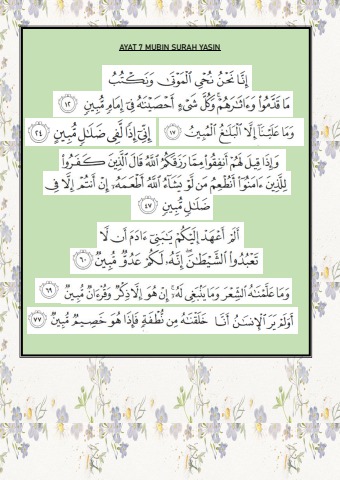 AYAT 7 MUBIN SURAH YASIN
إِنَّا نَحْنُ نُحْىِ ٱلْمَوْتَىٰ وَنَكْتُبُ
مَا قَدَّمُوا۟ وَءَاثَـٰرَهُمْ ۚ وَكُلَّ شَىْءٍ أَحْصَيْنَـٰهُ فِىٓ إِمَامٍ مُّبِينٍ ١٢
وَمَا عَلَيْنَآ إِلَّا ٱلْبَلَـٰغُ ٱلْمُبِينُ ١٧ إِنِّىٓ إِذًا لَّفِى ضَلَـٰلٍ مُّبِينٍ ٢٤
وَإِذَا قِيلَ لَهُمْ أَنفِقُوا۟ مِمَّا رَزَقَكُمُ ٱللَّهُ قَالَ ٱلَّذِينَ كَفَرُوا۟
لِلَّذِينَ ءَامَنُوٓا۟ أَنُطْعِمُ مَن لَّوْ يَشَآءُ ٱللَّهُ أَطْعَمَهُۥٓ إِنْ أَنتُمْ إِلَّا فِى
ضَلَـٰلٍ مُّبِينٍ ٤٧
أَلَمْ أَعْهَدْ إِلَيْكُمْ يَـٰبَنِىٓ ءَادَمَ أَن لَّا
تَعْبُدُوا۟ ٱلشَّيْطَـٰنَ ۖ إِنَّهُۥ لَكُمْ عَدُوٌّ مُّبِينٌ ٦٠
وَمَا عَلَّمْنَـٰهُ ٱلشِّعْرَ وَمَا يَنۢبَغِى لَهُۥٓ ۚ إِنْ هُوَ إِلَّا ذِكْرٌ وَقُرْءَانٌ مُّبِينٌ ٦٩
أَوَلَمْ يَرَ ٱلْإِنسَـٰنُ أَنَّا خَلَقْنَـٰهُ مِن نُّطْفَةٍ فَإِذَا هُوَ خَصِيمٌ مُّبِينٌ ٧٧